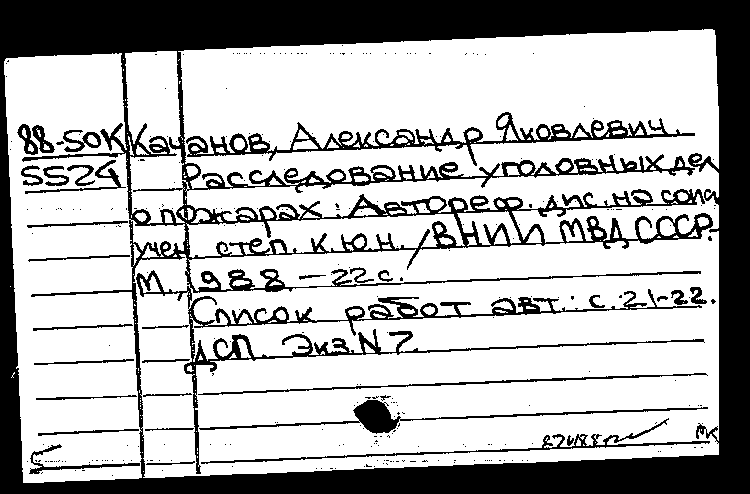 88-50К Качанов, Александр Яковлевич.
5524 Расследование уголовных дел
о пожарах : Автореф. дис. на соиск
учен. степ. к.ю.н. / ВНИИ МВД СССР.-
М., 1988. - 22 с.
Список работ авт.: с. 21-22.
ДСП. Экз. N 7.
МК
5